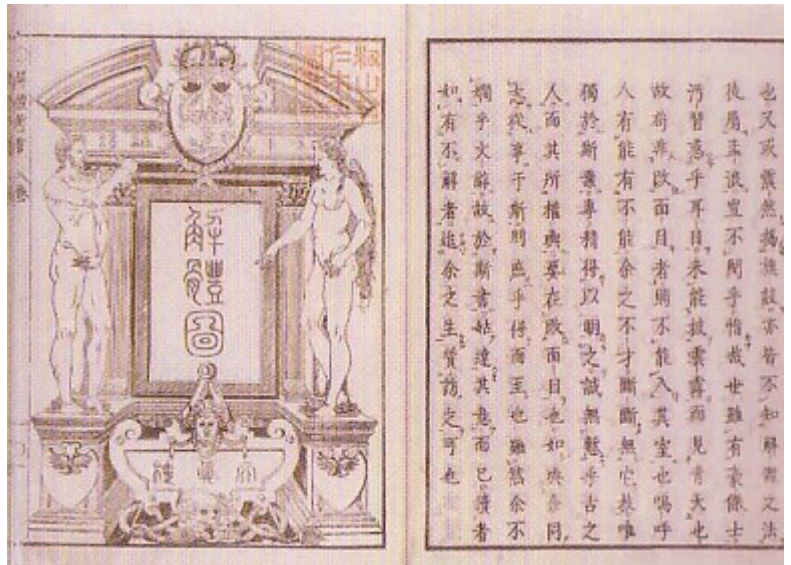 也又或然揚旗鼓亦皆不知解之法
徒屬孟浪豈不聞乎惜哉世雖有豪傑士
汚習惑乎耳目未能披雲霧而見青天也
故苟非改面目者則不能入其室也嗚呼
人有能有不能余之不才斷斷無它技唯
獨於斯業專精得以明之誠無慙乎古之
人而其所權輿要在改面目也如與余同
志從事于斯則庶乎得而至也雖然余不
嫺乎文辭故於斯書姑達其意而已讀者
如有不解者進余之生質訪之可也
解體圖
天眞樓